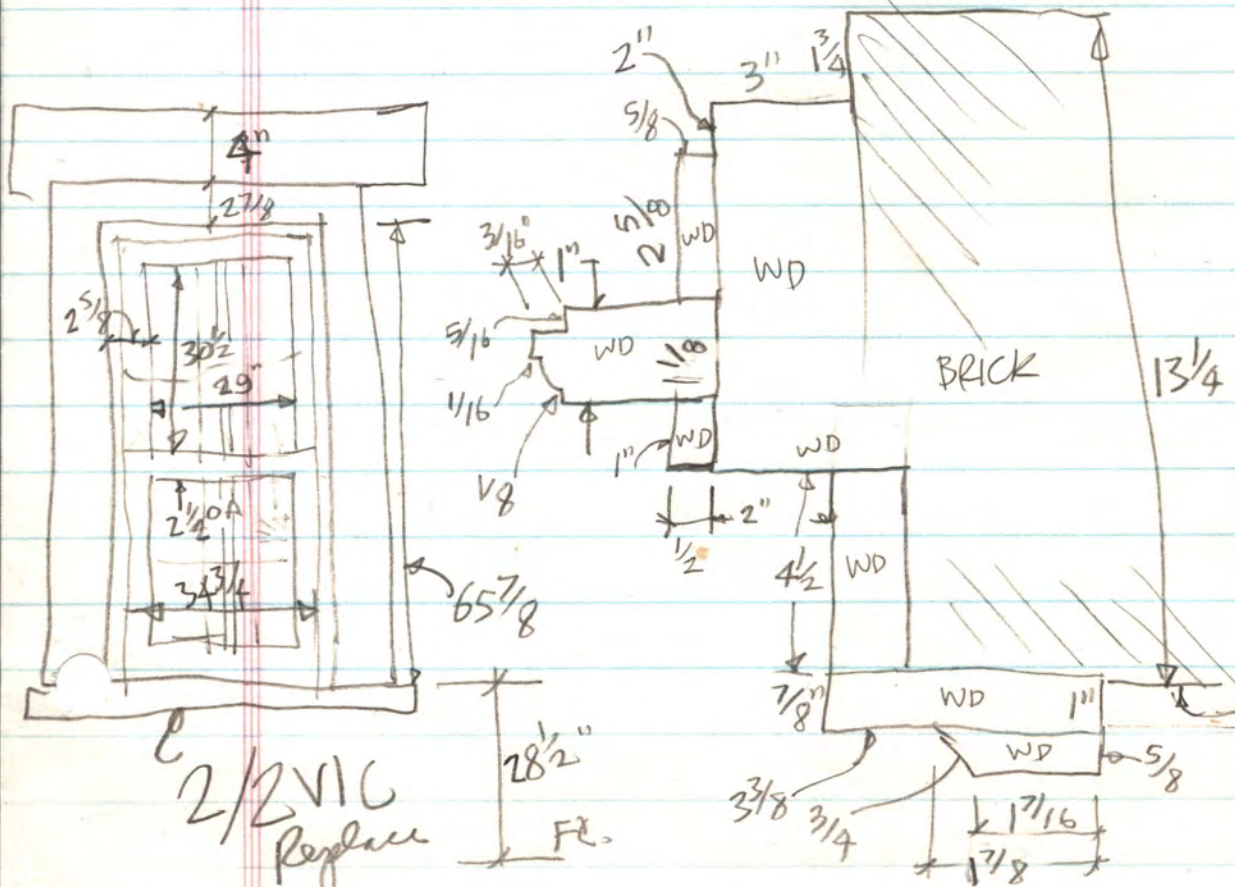 4"
2 7/8
2 5/8
30 1/2
29"
2 1/2 OA
34 3/4
65 7/8
28 1/2"
FL.
2/2 VIC
Replace
2"
3"
1 3/4
5/8
2 5/8
WD
WD
3/16"
1"
5/16
WD
1 1/8
1/16
1/8
1"
WD
WD
1/2
2"
4 1/2
WD
BRICK
13 1/4
7/8"
WD
1"
WD
5/8
3 3/8
3/4
1 7/16
1 7/8